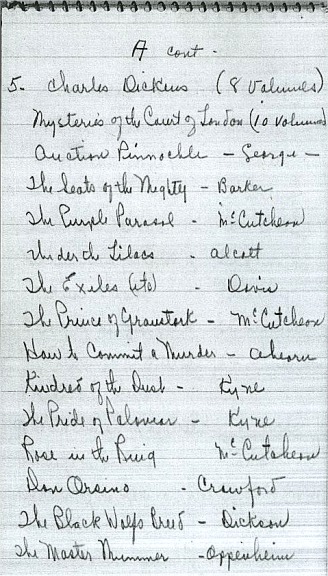 A cont -
5. Charles Dickens (8 Volumes)
Mysteries of the Court of London (10 Volumes)
Auction Pinnochle - George -
The Seats of the Mighty - Barker
The Purple Parasol - McCutcheon
Under the Lilacs - Alcott
The Exiles (etc) - Davis
The Prince of Graustark - McCutcheon
How to Commit a Murder - Ahearn
Kindred of the Dust - Kyne
The Pride of Palomar - Kyne
Rose in the Ring McCutcheon
Don Orsino - Crawford
The Black Wolf's Breed - Dickson
The Master Mummer - Oppenheim